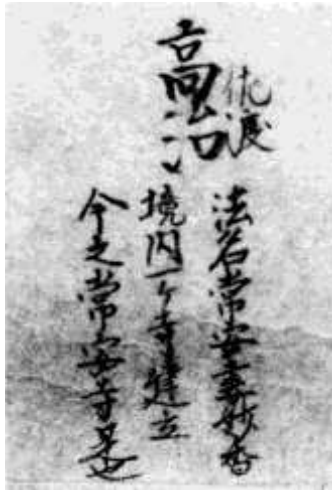 佐渡
高治
法名常安妻妙香
境内一ケ寺建立
今之常安寺是也